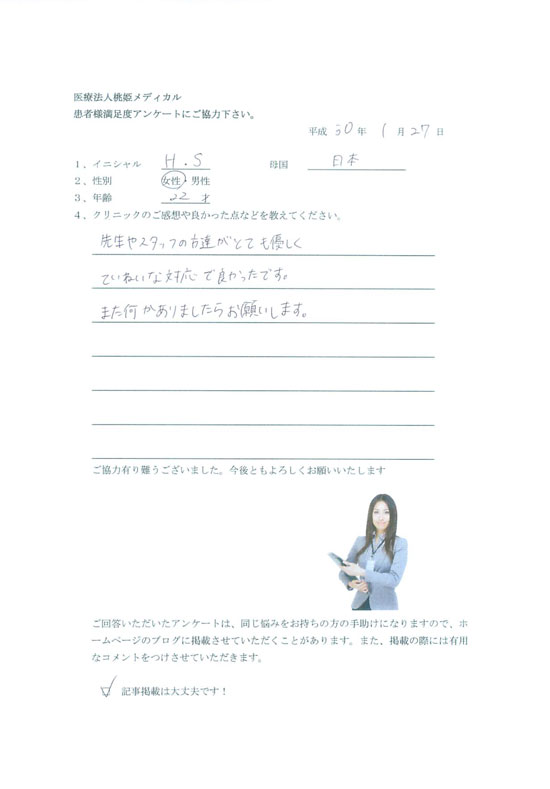 医療法人桃姫メディカル
患者様満足度アンケートにご協力下さい。
平成 30 年 1 月 27 日
1、イニシャル H.S 母国 日本
2、性別 女性・男性
3、年齢 22 才
4、クリニックのご感想や良かった点などを教えてください。
先生やスタッフの方達がとても優しく
ていねいな対応で良かったです。
また何かありましたらお願いします。
ご協力有り難うございました。今後ともよろしくお願いいたします
ご回答いただいたアンケートは、同じ悩みをお持ちの方の手助けになりますので、ホ
ームページのブログに掲載させていただくことがあります。また、掲載の際には有用
なコメントをつけさせていただきます。
記事掲載は大丈夫です！